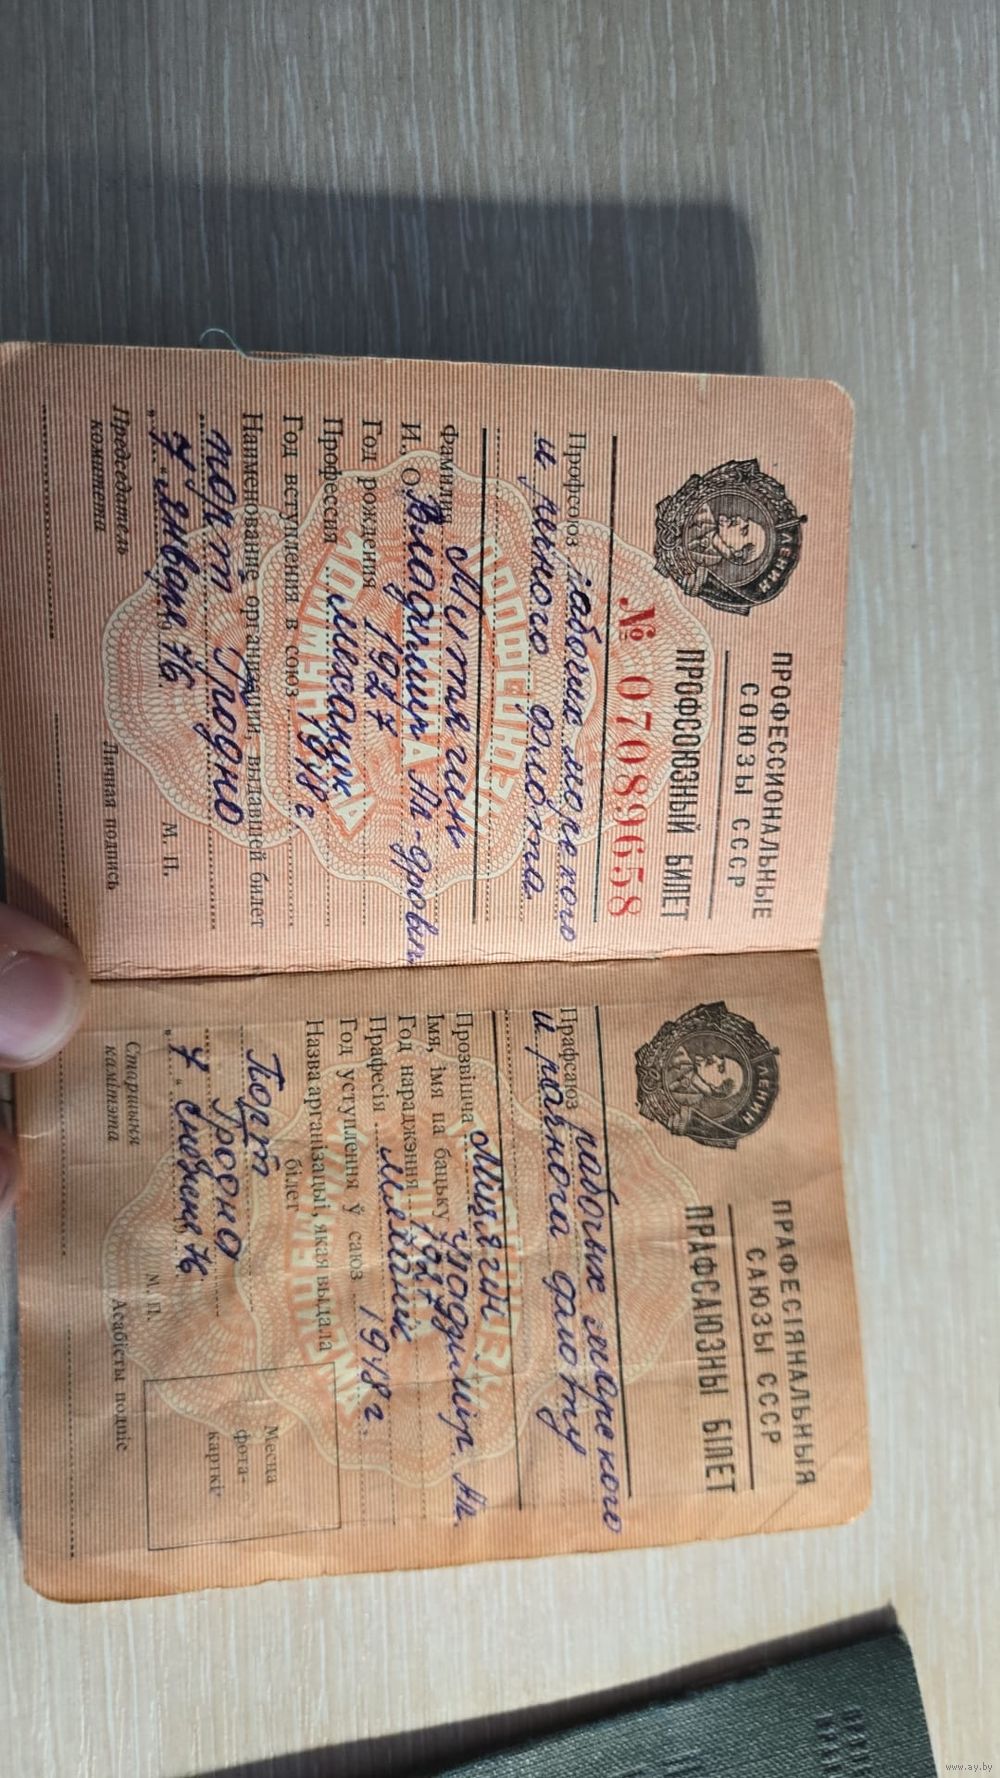 ПРОФЕССИОНАЛЬНЫЕ
СОЮЗЫ СССР
ПРОФСОЮЗНЫЙ БИЛЕТ
№ 07089658
ЛЕНИН
Профсоюз рабочих морского
и речного флота
Фамилия Митягин
И. О. Владимир Ал-дрович
Год рождения 1927
Профессия механик
Год вступления в союз 1948 г
Наименование организации, выдавшей билет
порт Гродно
„ 7 " января 76 М. П.
Председатель
комитета
Личная подпись
ПРАФЕСІЯНАЛЬНЫЯ
САЮЗЫ СССР
ПРАФСАЮЗНЫ БІЛЕТ
ЛЕНИН
Прафсаюз рабочых марского
и рачнога флоту
Прозвішча Міцягін
Імя, імя па бацьку Уладзімір Ал.
Год нараджэння 1927
Прафесія механик
Год уступлення ў саюз 1948 г.
Назва арганізацыі, якая выдала
білет
Порт
Гродно
„ 7 " 76 М. П.
Старшыня
камітэта
Асабісты подпіс
Месца
фота-
карткі
www.ay.by